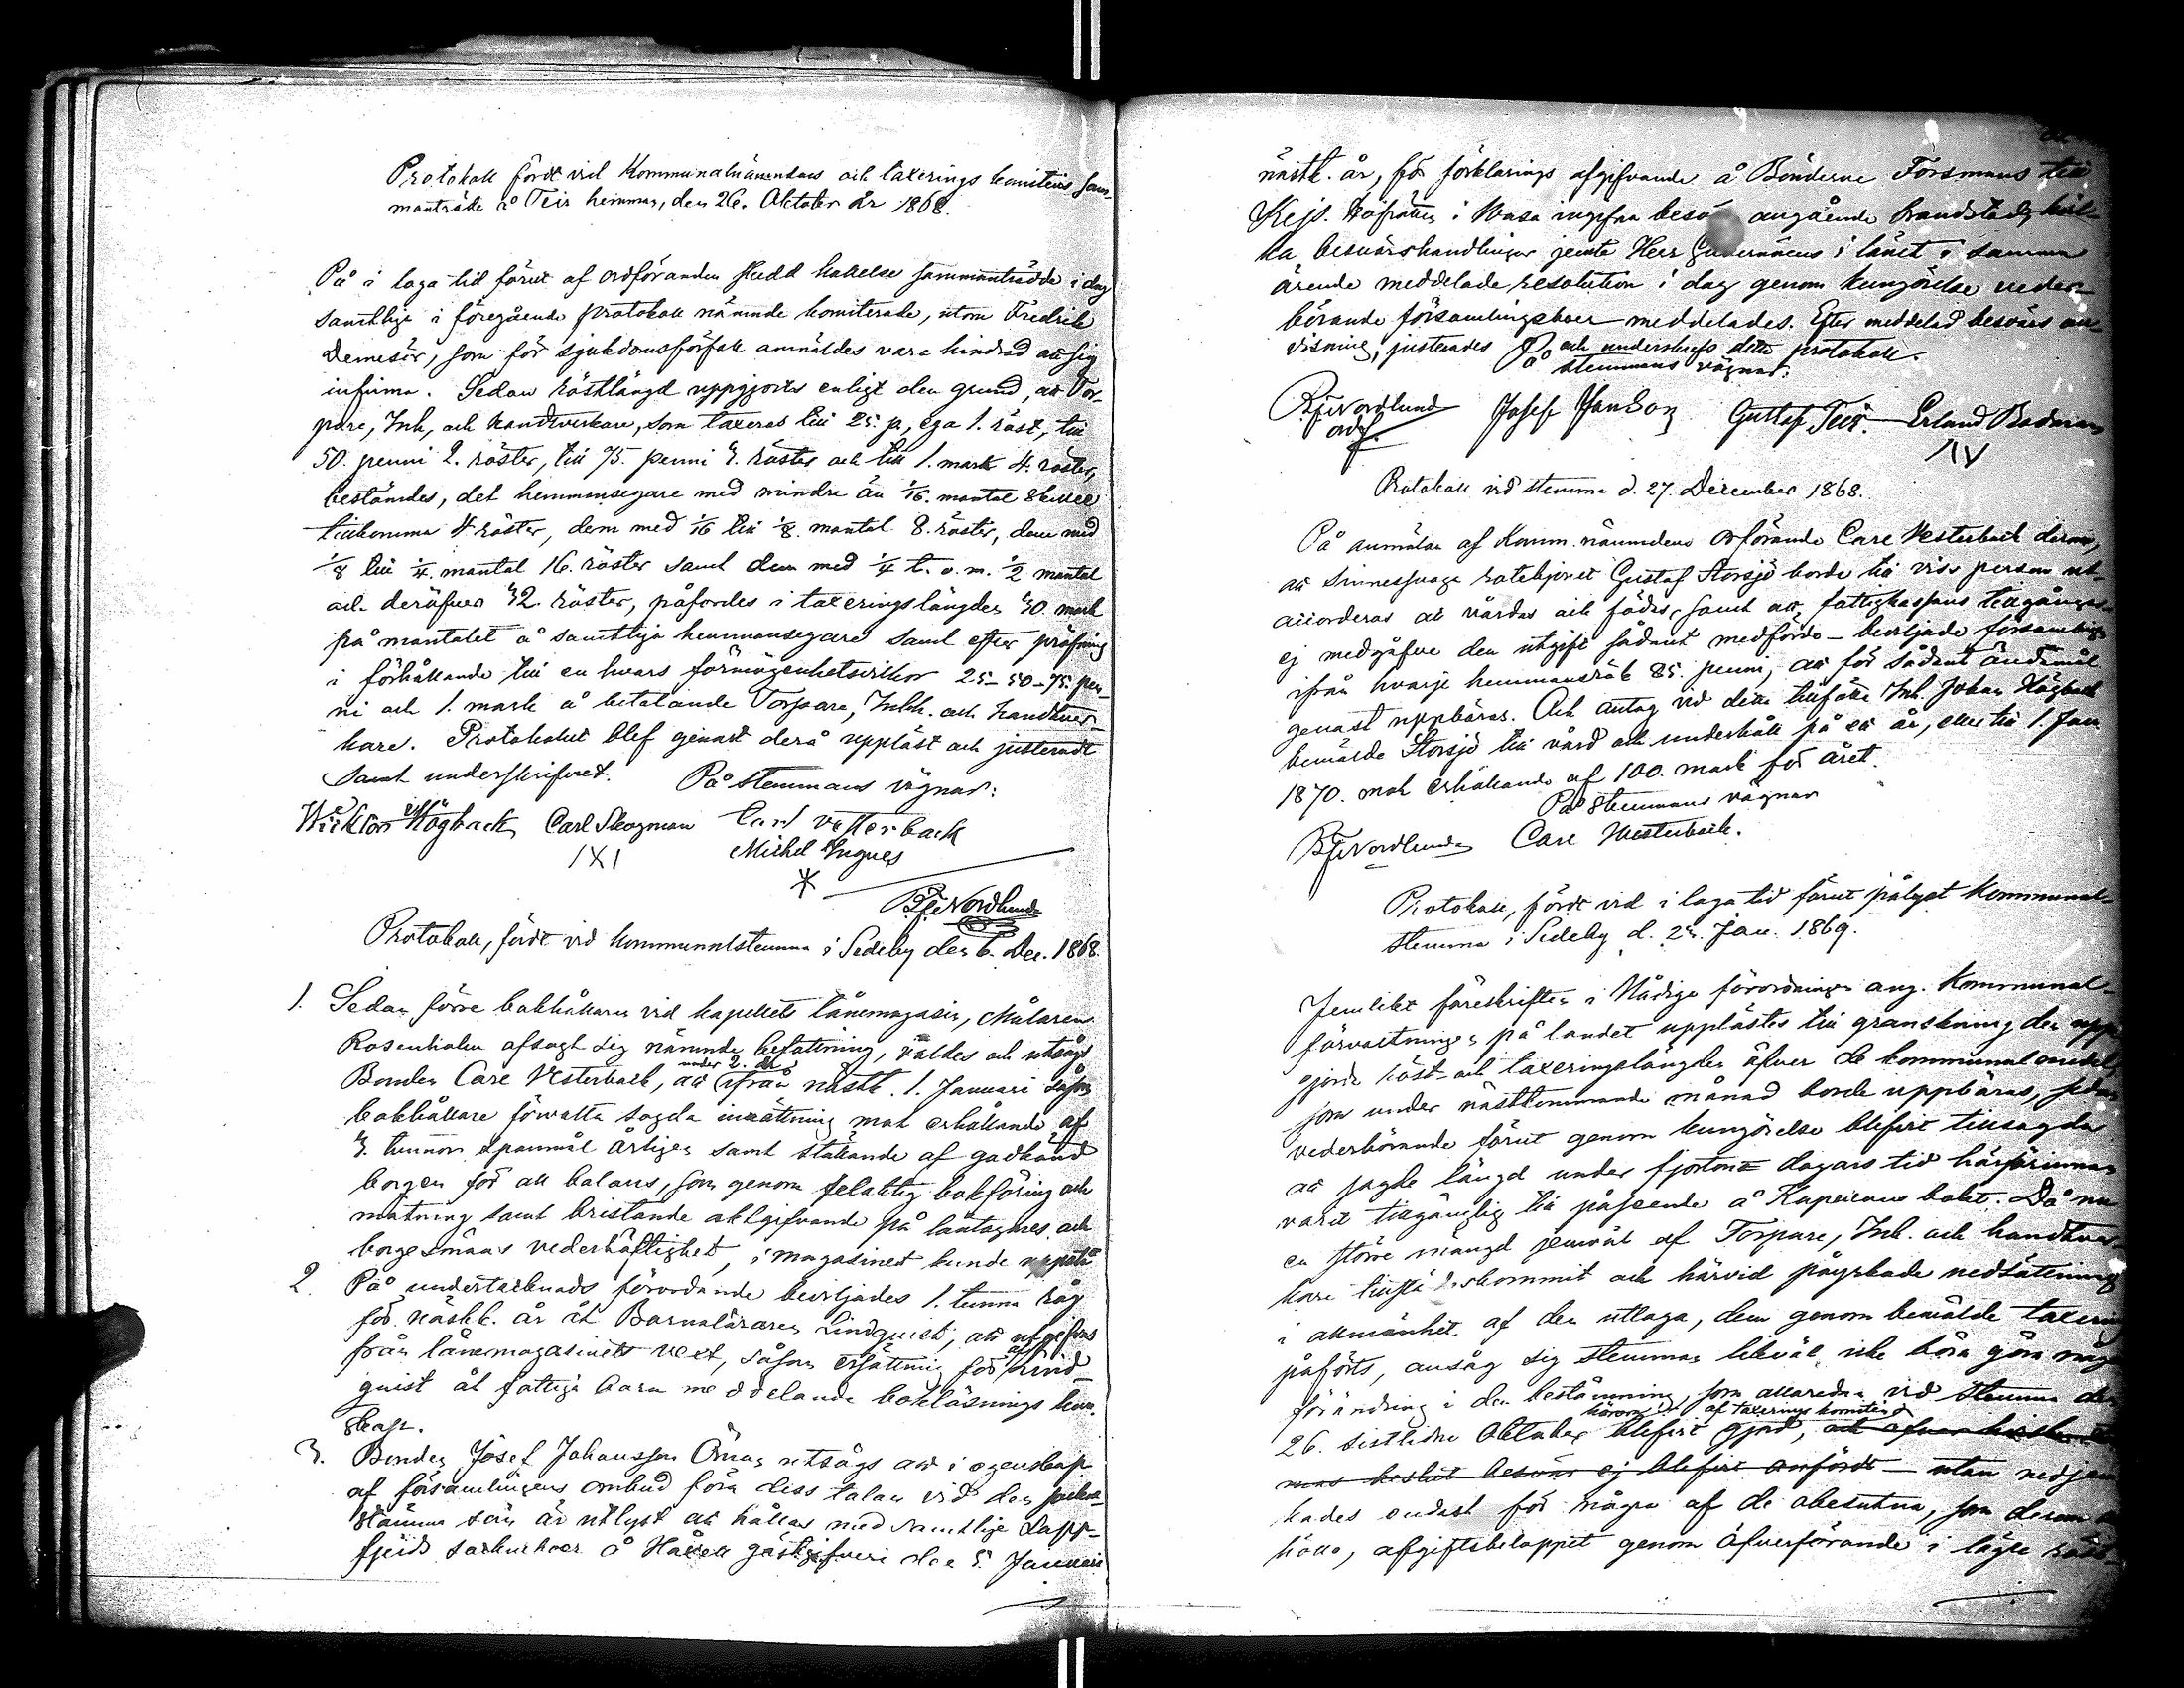 Protokoll fördt vid Kommunalnämndens och taxerings komiteens sam-
manträde å Teir hemman, den 26. Oktober år 1868.
På i laga tid förut af ordföranden skedd kallelse sammanträdde i dag
samtlige i föregående protokoll nämnde komiterade, utom Fredrik
Demesör, som för sjukdomsförfall anmäldes vara hindrad att sig
infinna. Sedan röstlängd uppgjorts enligt den grund, att Tor-
pare, Inh, och handtverkare, som taxeras till 25. p, ega 1. röst, till
50. penni 2. röster, till 75. penni 3. röster och till 1. mark 4. röster,
bestämdes, det hemmansegare med mindre än 1/16. mantal skulle
tillkomma 4 röster, dem med 1/16 till 1/8. mantal 8. röster, dem med
1/8 till 1/4. mantal 16. röster samt dem med 1/4 t. o. m. 1/2 mantal
och deröfver 32. röster, påfördes i taxeringslängden 30. mark
på mantalet å samtliga hemmansegare samt efter pröfning
i förhållande till en hvars förmögenhetsvilkor 25-50-75. pen-
ni och 1. mark å betalande Torpare, Inhh. och handtver-
kare. Protokollet blef genast derå uppläst och justeradt
samt underskrifvet. På stemmans vägnar:
Wicktor Högback Carl Skogman Carl vesterback
Michel Ingves
BFNordlund
Protokoll, fördt vid kommunalstemma i Sedeby den 6. Dec. 1868.
1. Sedan förre bokhållaren vid kapellets lånemagasin, Målaren
Rosenholm afsagt sig nämnde befattning, valdes och utsågs
under 2. år
Bonden Carl Vesterback, att ifrån nästk. 1. Januari såsom
bokhållare förvalta sagda inrättning mot erhållande af
3. tunnor spanmål årligen samt ställande af godkänd
borgen för all balans, som genom felaktig bokföring och
mätning samt bristande aktgifvande på låntagares och
borgesmäns vederhäftighet, i magasinet kunde uppstå
2. På undertecknads förordande beviljades 1. tunna råg
för nästk. år åt Barnaläraren Lindquist, att utgifvas
från lånemagasinets vext, såsom ersättning för af Lind-
quist åt fattiga barn meddelande bokläsnings kun-
skap.
3. Bonden Josef Johansson Örnas utsågs att i egenskap
af församlingens ombud föra dess talan vid den
stämma som är utlyst att hållas med samtlige Lapp-
fjerds sockneboer å gästgifveri den 5. Januari
nästk. år, för förklarings afgifvande å Bönderne Forsmans till
Kejs. Hofrätten i Wasa ingifna besvär angående
ka besvärshandlingar jemte Herr Guvernörens i länet i samma
ärende meddelade resolution i dag genom kungörelse veder-
börande församlingsboer meddelades. Efter meddelad besvärs an-
visning, justerades och underskrefs detta protokoll.
På stemmans vägnar:
BFNordlund Josef Janson Gustaf Teir. Erland Bodman
ordf.
Protokoll vid stemma d. 27. December 1868.
På anmälan af Komm. nämndens Ordförande Carl Vesterback derom,
att sinnessvaga rotehjonet Gustaf Storsjö borde till viss person ut-
ackorderas att vårdas och födas, samt att, fattigkassans tillgångar
ej medgåfve den utgift sådant medförde - beviljade församlingen
ifrån hvarje hemmansrök 85. penni, att för sådant ändamål
genast uppbäras. Och antog vid detta tillfälle Inh. Johan Högback
bemälde Storsjö till vård och underhåll på ett år, eller till 1. Jan.
1870. mot erhållande af 100. mark för året.
På Stemmans vägnar
BFNordlund Carl Westerback.
Protokoll, fördt vid i laga tid förut pålyst kommunal-
stemma i Sedeby d. Jan. 1869.
Jemlikt föreskriften i Nådiga förordningen ang. Kommunal-
förvaltningen på landet upplästes till granskning den upp-
gjorda röst- och taxeringslängden öfver de kommunal medel,
som under nästkommande månad borde uppbäras, sedan
vederbörande förut genom kungörelse blifvit tillsagda
att sagde längd under fjorton dagars tid härförinnan
varit tillgänglig till påseende å Kapellans bolet. Då nu
en större mängd jemväl af Torpare, Inh. och handtver-
kare tillstädeskommit och härvid påyrkade nedsättning
i allmänhet af den utlaga, dem genom bemälde taxering
påförts, ansåg sig stemman likväl icke böra göra någon
förändring i den bestämning, som allaredan vid stemma den
härom af taxerings komitén
26. sistlidne Oktober blifvit gjord, och
mas beslut besvär ej blifvit anförde - utan nedjem-
kades endast för några af de obesutna, som derom
höllo, afgiftsbeloppet genom öfverförande i lägre